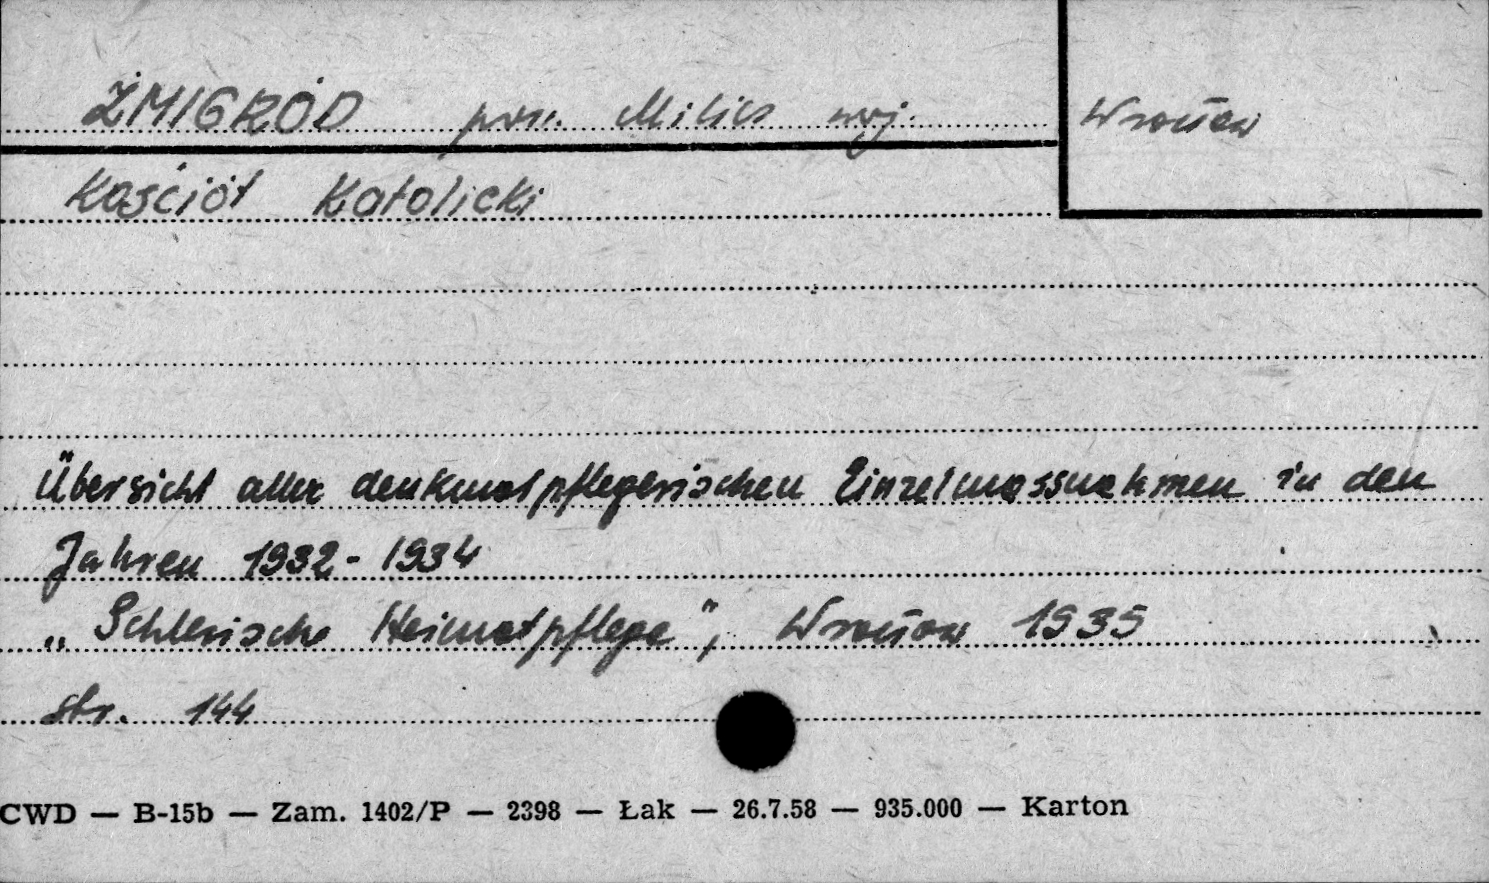 ŻMIGRÓD pow. Milicz woj. Wrocław
Kościół Katolicki
Übersicht aller denkmalpflegerischen Einzelmassnahmen in den
Jahren 1932-1934
„Schlesische Heimatpflege", Wrocław 1935
str. 144
CWD — B-15b — Zam. 1402/P — 2398 — Łak — 26.7.58 — 935.000 — Karton